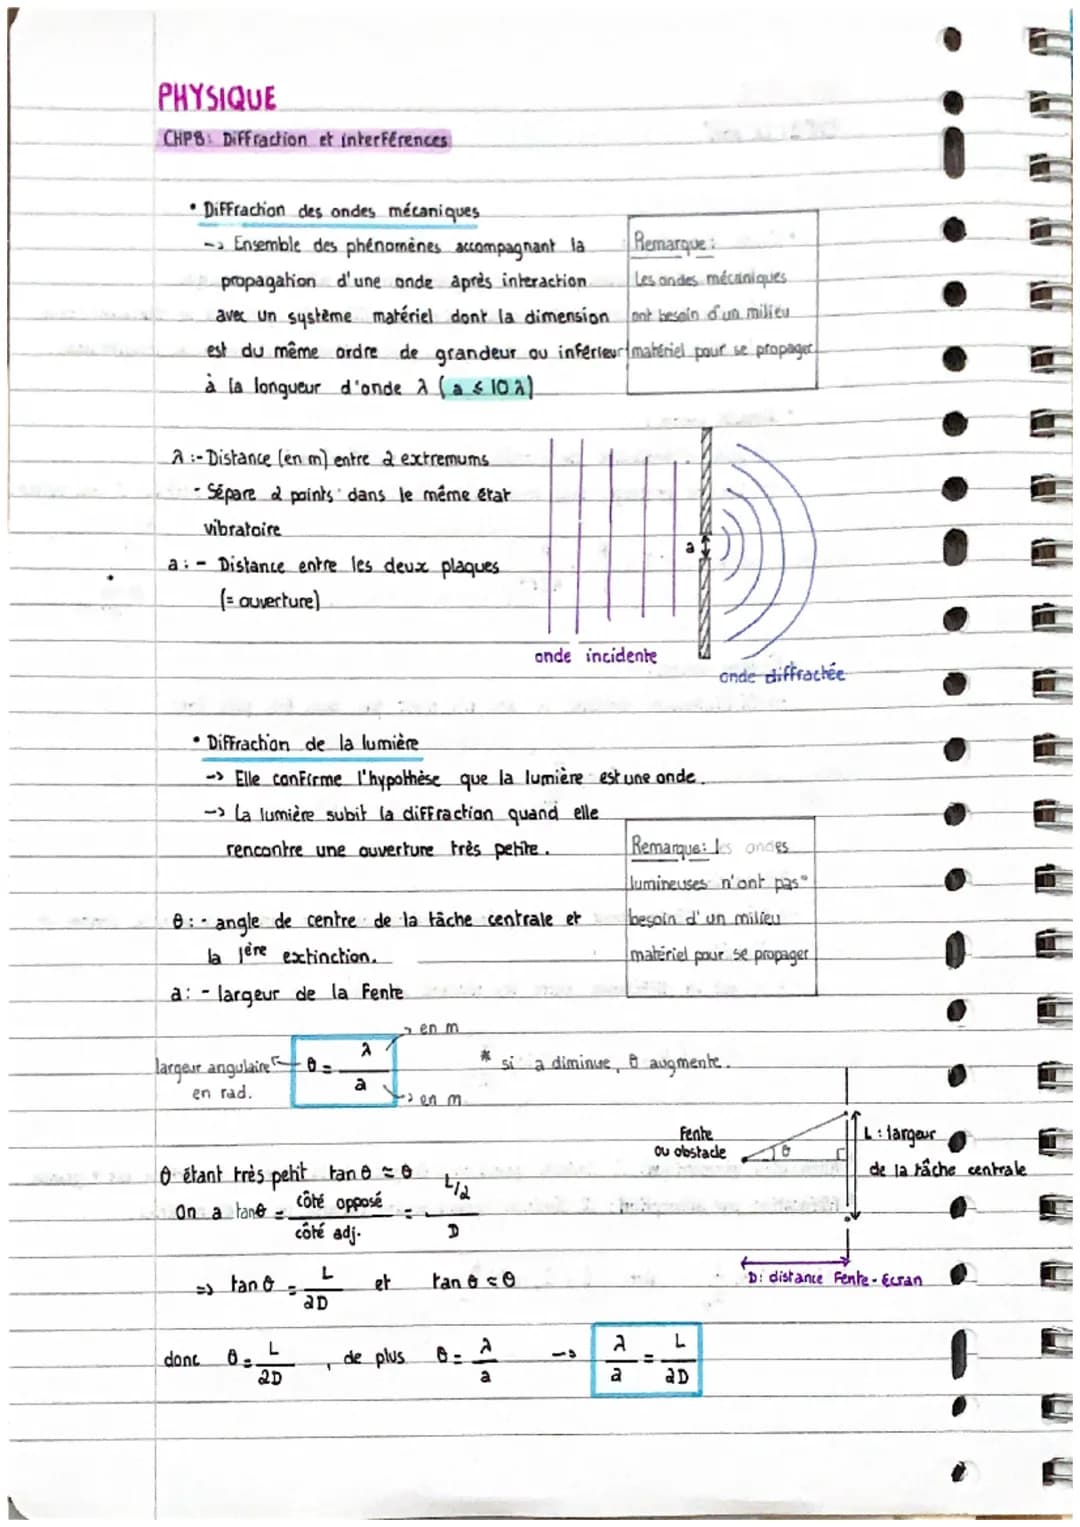 PHYSIQUE
CHP8: Diffraction et interférences
• Diffraction des ondes mécaniques
-> Ensemble des phénomènes accompagnant la
propagation d'une onde après interaction
avec un système matériel dont la dimension
est du même ordre de grandeur ou inférieur
à la longueur d'onde λ (a ≤ 10 λ)
Remarque:
Les ondes mécaniques
ont besoin d'un milieu
matériel pour se propager
λ :- Distance (en m) entre 2 extremums
- Sépare 2 points dans le même état
vibratoire
a : - Distance entre les deux plaques
(= ouverture)
a
onde incidente
onde diffractée
• Diffraction de la lumière
-> Elle confirme l'hypothèse que la lumière est une onde.
-> La lumière subit la diffraction quand elle
rencontre une ouverture très petite.
Remarque: les ondes
lumineuses n'ont pas
besoin d'un milieu
matériel pour se propager
θ : - angle de centre de la tâche centrale et
la 1ère extinction.
a: - largeur de la Fente
largeur angulaire
en rad.
θ = λ / a
en m
en m
* si a diminue, θ augmente.
Fente
ou obstacle
θ
L : largeur
de la tâche centrale
D: distance Fente - Écran
θ étant très petit tan θ ≈ θ
On a tan θ = côté opposé / côté adj. = L/2 / D
=> tan θ = L / 2D et tan θ ≈ θ
donc θ = L / 2D , de plus θ = λ / a -> λ / a = L / 2D